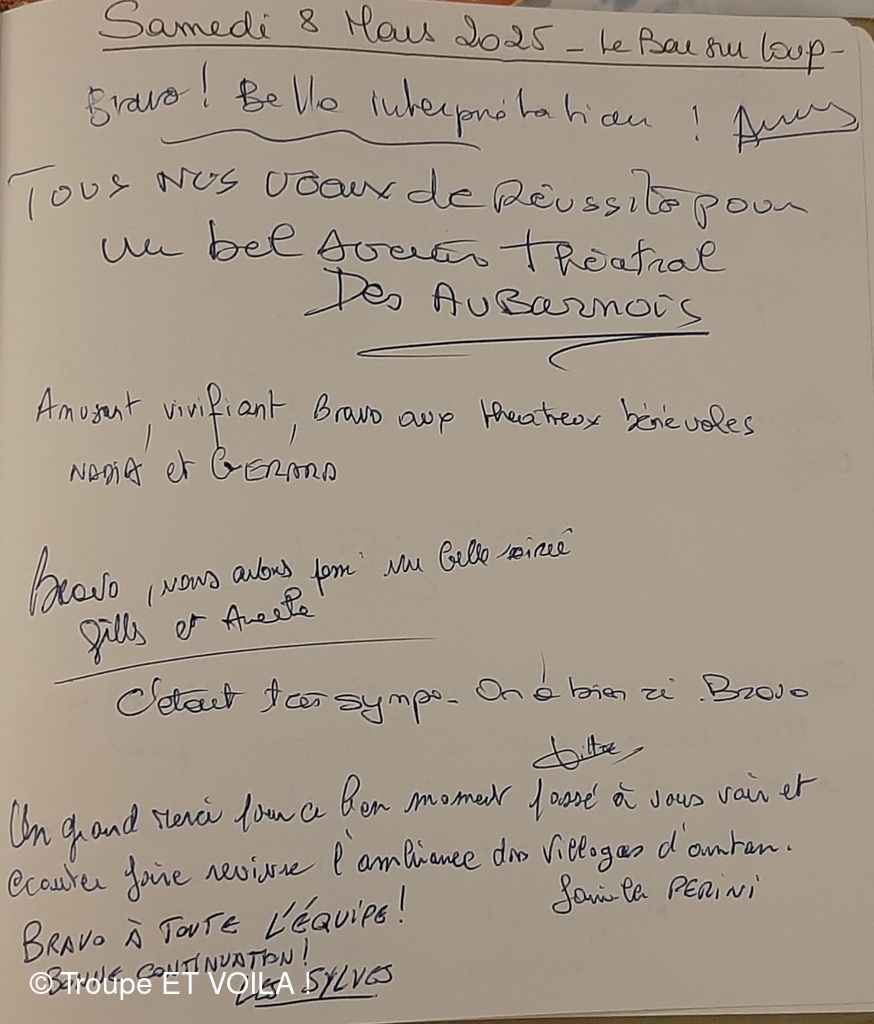 Samedi 8 Mars 2025 - Le Bar sur Loup -
Bravo ! Belle interprétation !
Tous nos voeaux de Réussite pour
un bel avenir théatral
Des AuBarnois
Amusant, vivifiant, Bravo aux theatreux bénévoles
NADIA et GERARD
Bravo, nous avons passé une belle soirée
Gilles et
C'était très sympa - On à bien ri . Bravo
Un grand merci pour ce bon moment passé à vous voir et
écouter faire revivre l'ambiance des villages d'antan.
famille PERINI
BRAVO À TOUTE L'ÉQUIPE !
BONNE CONTINUATION !
LES SYLVES
©Troupe ET VOILA !